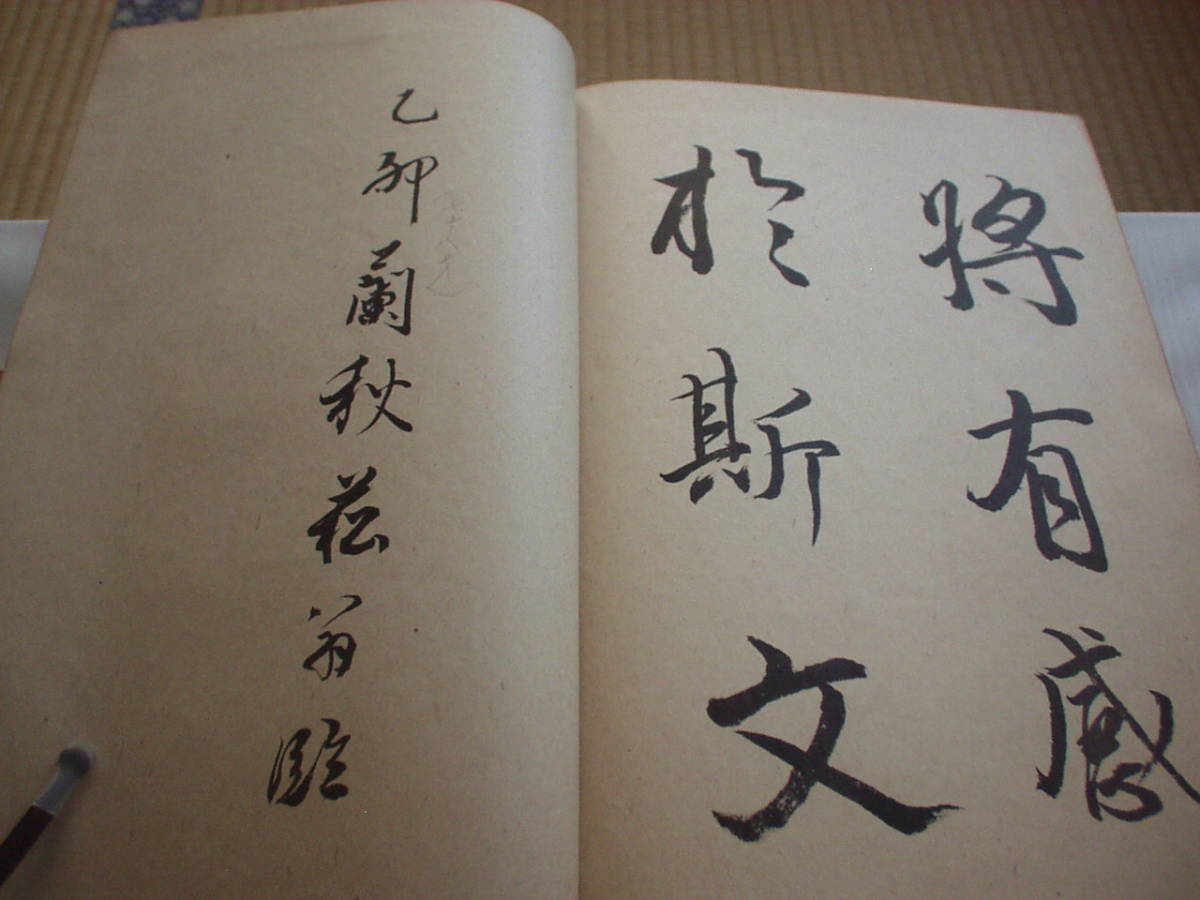 將有感
於斯文
乙卯蘭秋菘翁臨